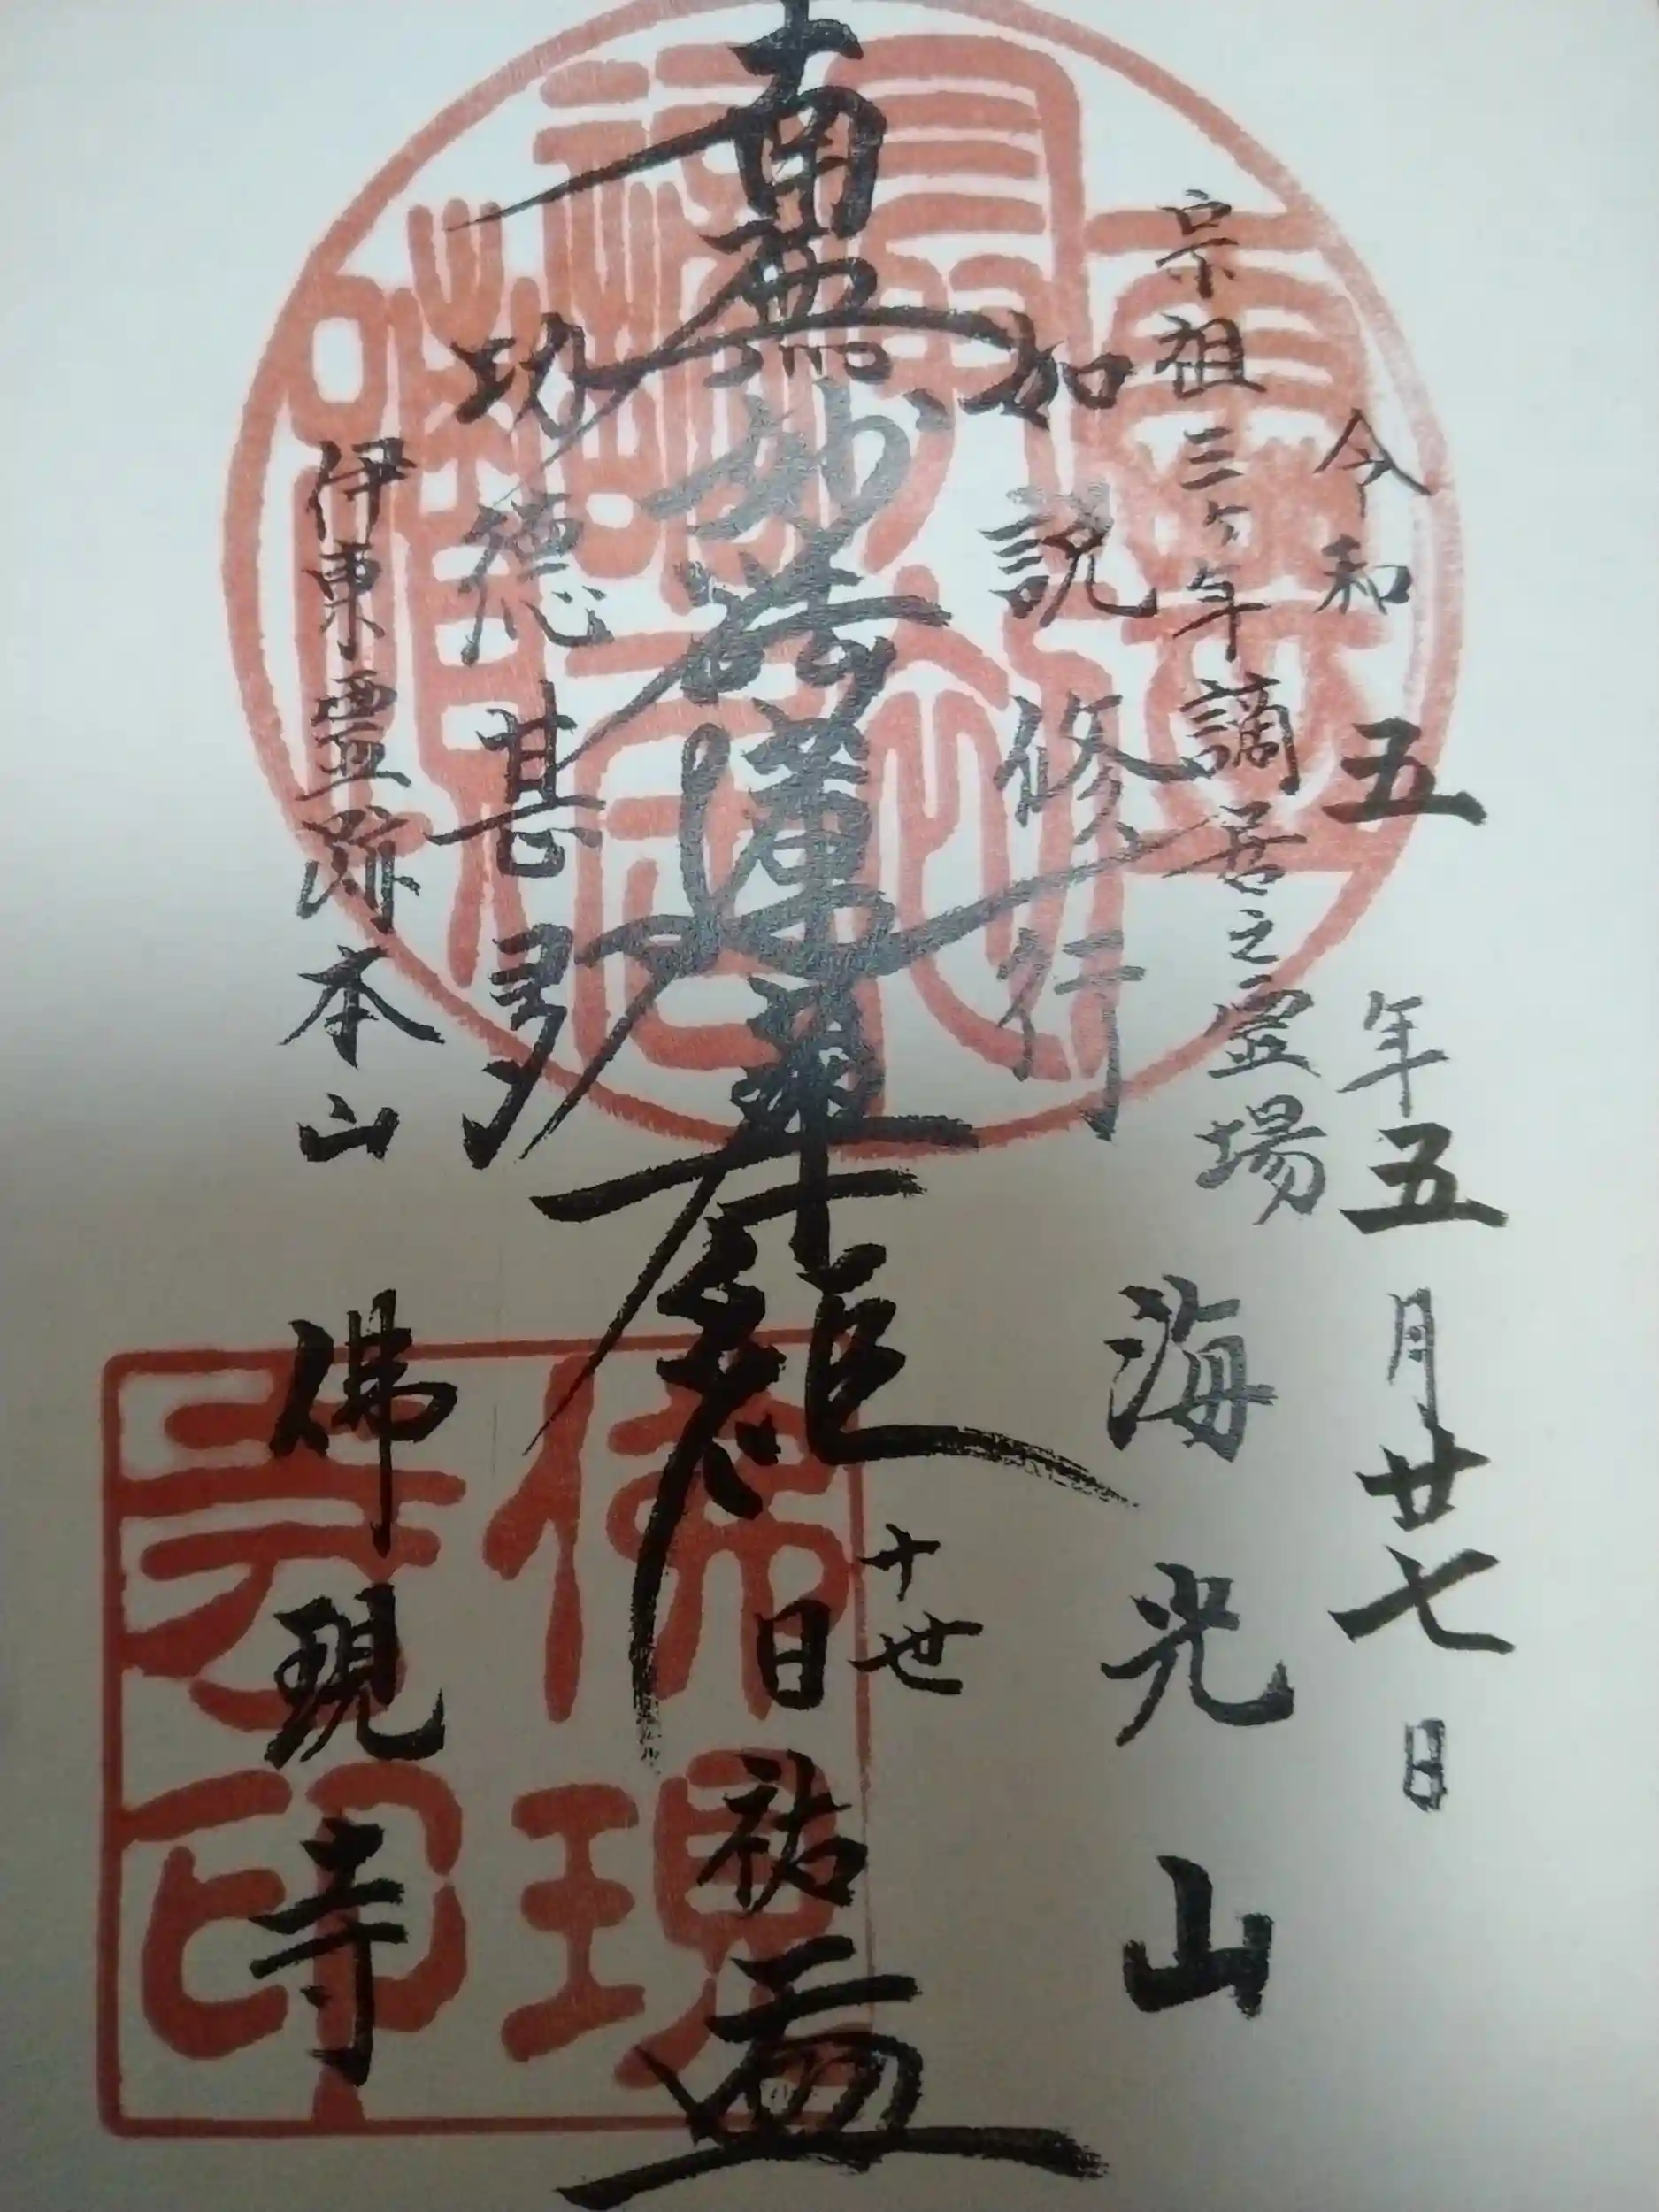 令和五年五月廿七日
宗祖三ヶ年謫居之霊場
海光山
如説修行
南無妙法蓮華経
十世
日祐
功徳甚多
伊東霊跡本山
佛現寺
佛現寺印